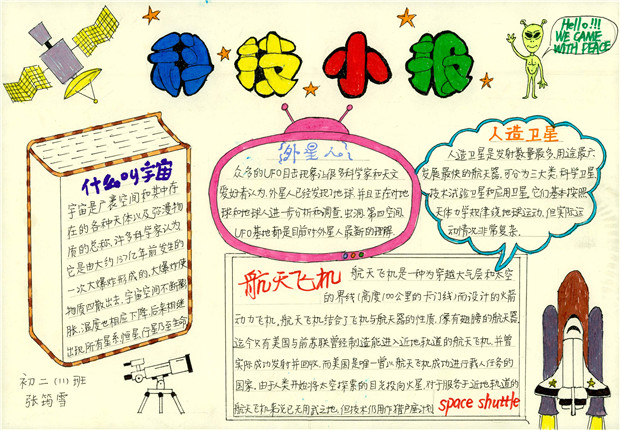 科技小报
Hello!!!
WE CAME
WITH PEACE
什么叫宇宙
宇宙是广袤空间和其中存
在的各种天体以及弥漫物
质的总称.许多科学家认为
它是由大约137亿年前发生的
一次大爆炸形成的.大爆炸使
物质四散出去,宇宙空间不断膨
胀,温度也相应下降,后来相继
出现所有星系,恒星,行星乃至生命
外星人
众多的UFO目击现象让很多科学家和天文
爱好者认为,外星人已经发现了地球,并且正在对地
球和地球人进一步分析和调查,出洞.第四空间.
UFO基地都是目前对外星人最新的理解.
人造卫星
人造卫星是发射数量最多.用途最广.
发展最快的航天器,可分为三大类:科学卫星
技术试验卫星和应用卫星,它们基本按照
天体力学规律绕地球运动,但实际运
动情况非常复杂.
航天飞机
航天飞机是一种为穿越大气层和太空
的界线(高度100公里的卡门线)而设计的火箭
动力飞机.航天飞机结合了飞机与航天器的性质,像有翅膀的航天器,
这个只有美国与前苏联曾经制造能进入近地轨道的航天飞机,并曾
实际成功发射并回收.而美国是唯一曾以航天飞机成功进行载人任务的
国家,由于人类开始将太空探索的目光投向火星,对于服务于近地轨道的
航天飞机来说已无用武之地.但技术仍用作猎户座计划
space shuttle
初二(11)班
张筠雪